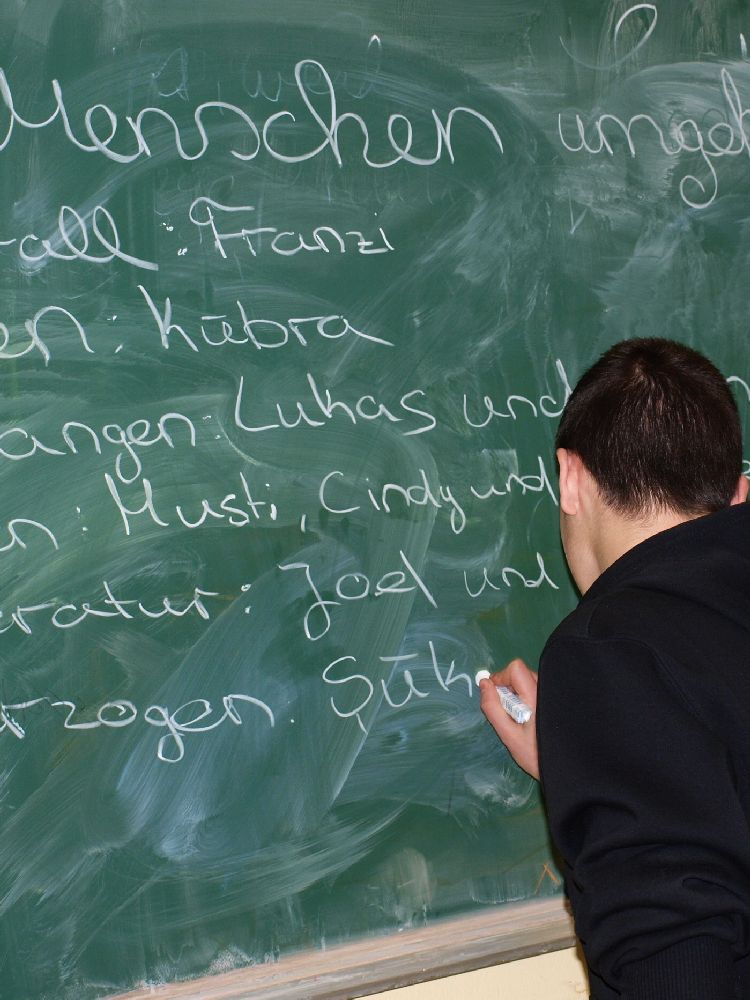 Menschen umgeh
all : Franzi
en : Kübra
angen : Lukas und
en : Musti, Cindy und
ratur : Joel und
rzogen. Şük